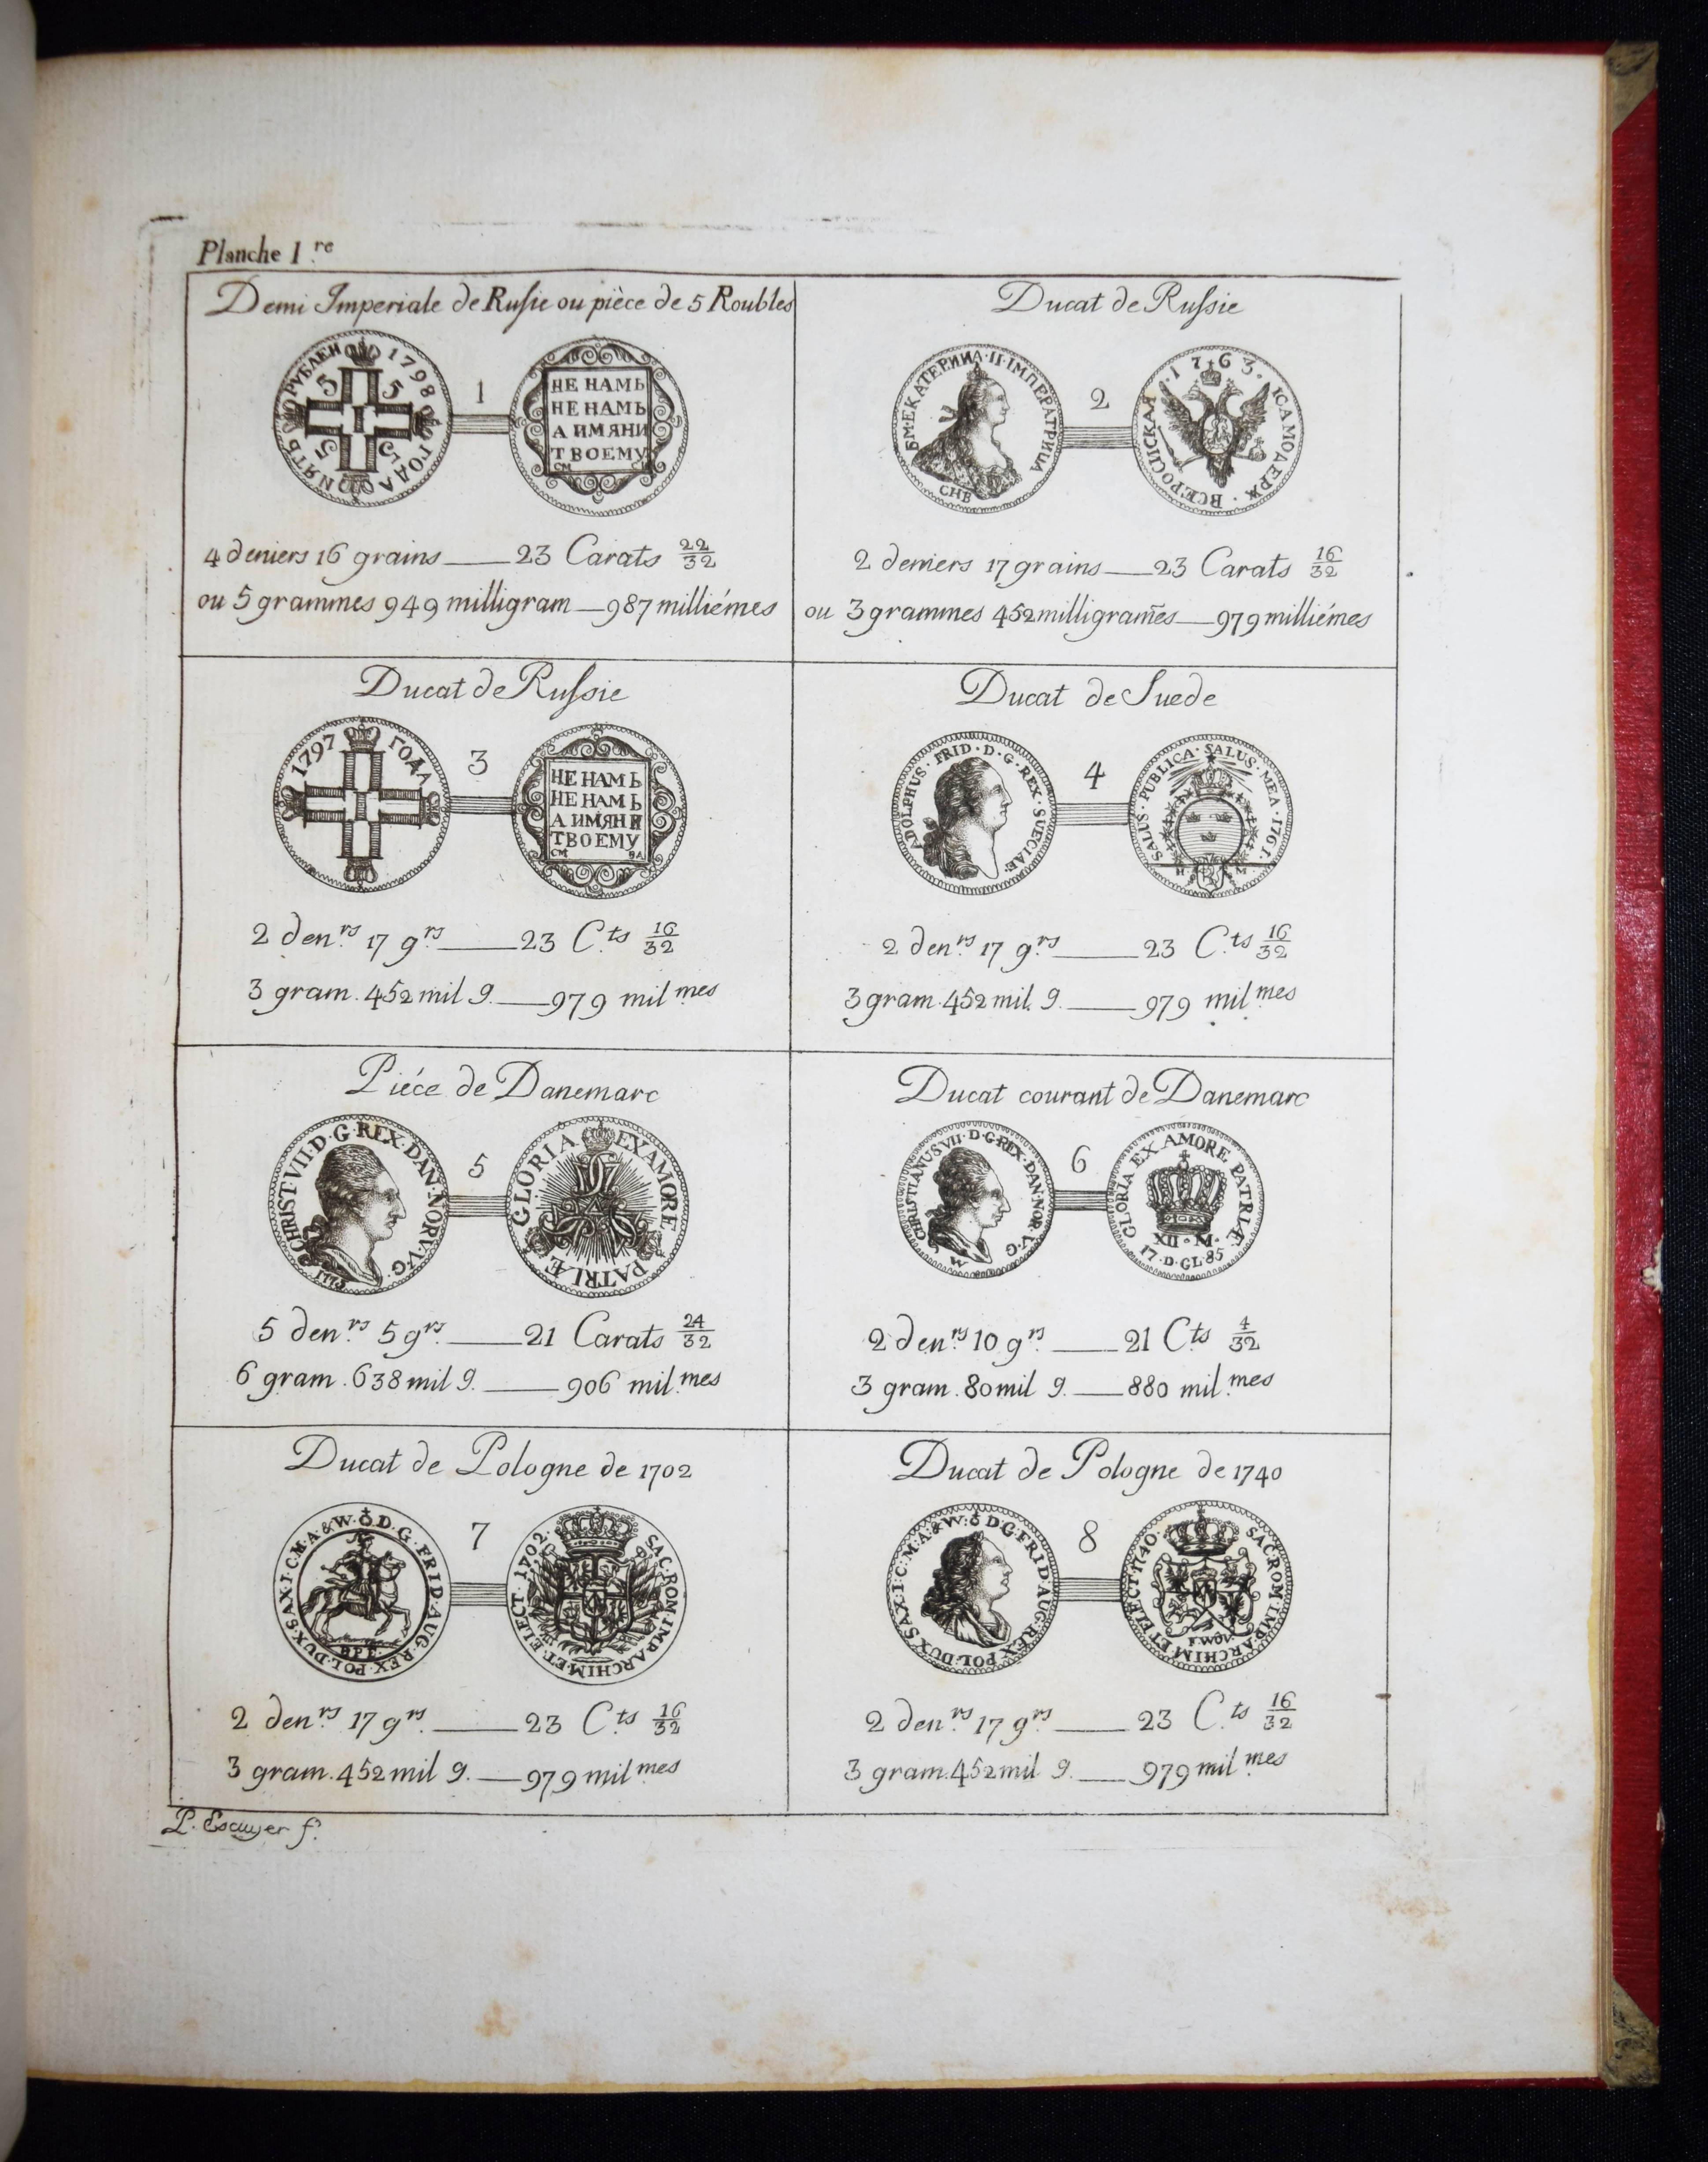 Planche 1.re
Demi Imperiale de Rusie ou pièce de 5 Roubles
1
ПЯТЬ РУБЛЕИ 1798 ГОДА
5 5 5 5
НЕ НАМЬ
НЕ НАМЬ
А ИМЯНИ
ТВОЕМУ
СМ
4 deniers 16 grains 23 Carats 22/32
ou 5 grammes 949 milligram 987 milliémes
Ducat de Russie
2
БМ·ЕКАТЕРИНА·II·IМПЕРАТРИЦА
СПВ
·1763· IСАМОДЕРЖ·ВСЕРОСИСКАЯ
2 deniers 17 grains 23 Carats 16/32
ou 3 grammes 452 milligram̃es 979 milliémes
Ducat de Russie
3
1797 ГОДА
НЕ НАМЬ
НЕ НАМЬ
А ИМЯНИ
ТВОЕМУ
СМ
2 den.rs 17 g.rs 23 C.ts 16/32
3 gram. 452 mil g. 979 mil.mes
Ducat de Suede
4
ADOLPHUS·FRID·D·G·REX·SUECIAE·
SALUS·PUBLICA·SALUS·MEA·1761·
H M·
2 den.rs 17 g.rs 23 C.ts 16/32
3 gram. 452 mil. g. 979 mil.mes
Piéce de Danemarc
5
CHRIST·VII·D·G·REX·DAN·NORV·V·G·
GLORIA EX AMORE PATRIÆ
5 den.rs 5 g.rs 21 Carats 24/32
6 gram. 638 mil g. 906 mil.mes
Ducat courant de Danemarc
6
CHRISTIANUS VII·D·G·REX·DAN·NOR·V·G·
W
GLORIA EX AMORE PATRIÆ·
XII·M·
17·D·CL 85
2 den.rs 10 g.rs 21 C.ts 4/32
3 gram. 80 mil g. 880 mil.mes
Ducat de Pologne de 1702
7
D·G·FRID·AUG·REX·POL·DUX·SAX·I·C·M·A·&W·
SAC·ROM·IMP·ARCHIM·ET·ELECT·1702·
2 den.rs 17 g.rs 23 C.ts 16/32
3 gram. 452 mil g. 979 mil.mes
Ducat de Pologne de 1740
8
D·G·FRID·AUG·REX·POL·DUX·SAX·I·C·M·A·&W·
SAC·ROM·IMP·ARCHIM·ET·ELECT·1740·
F·WôV·
2 den.rs 17 g.rs 23 C.ts 16/32
3 gram. 452 mil g. 979 mil.mes
P. Escuyer f.